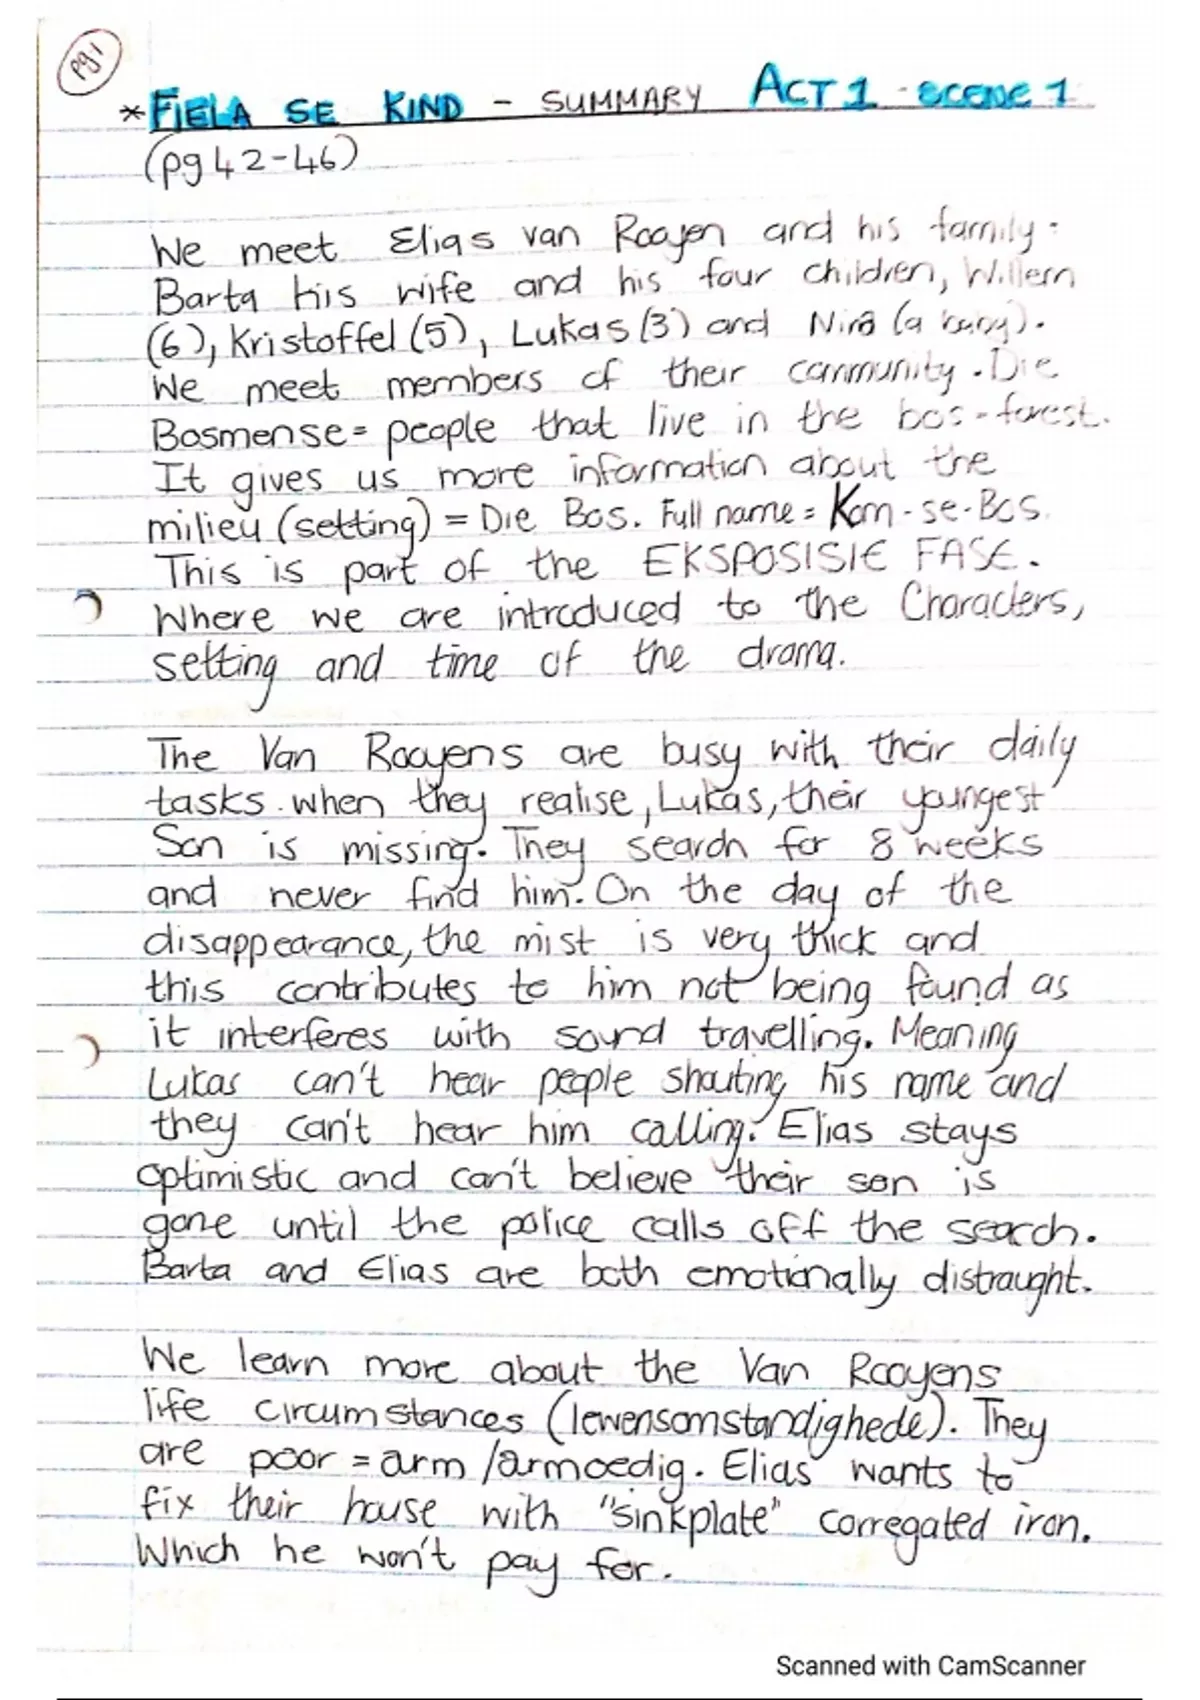 pg1
* FIELA SE KIND - SUMMARY ACT 1 - SCENE 1
(pg 42-46)
We meet Elias van Rooyen and his family:
Barta his wife and his four children, Willem
(6), Kristoffel (5), Lukas (3) and Nina (a baby).
We meet members of their community. Die
Bosmense = people that live in the bos - forest.
It gives us more information about the
milieu (setting) = Die Bos. Full name = Kom-se-Bos.
This is part of the EKSPOSISIE FASE.
Where we are introduced to the Characters,
setting and time of the drama.
The Van Rooyens are busy with their daily
tasks when they realise, Lukas, their youngest
Son is missing. They search for 8 weeks
and never find him. On the day of the
disappearance, the mist is very thick and
this contributes to him not being found as
it interferes with sound travelling. Meaning
Lukas can't hear people shouting his name and
they can't hear him calling. Elias stays
optimistic and can't believe their son is
gone until the police calls off the search.
Barta and Elias are both emotionally distraught.
We learn more about the Van Rooyens
life circumstances (lewensomstandighede). They
are poor = arm /armoedig. Elias wants to
fix their house with "sinkplate" corregated iron.
Which he won't pay for.
Scanned with CamScanner